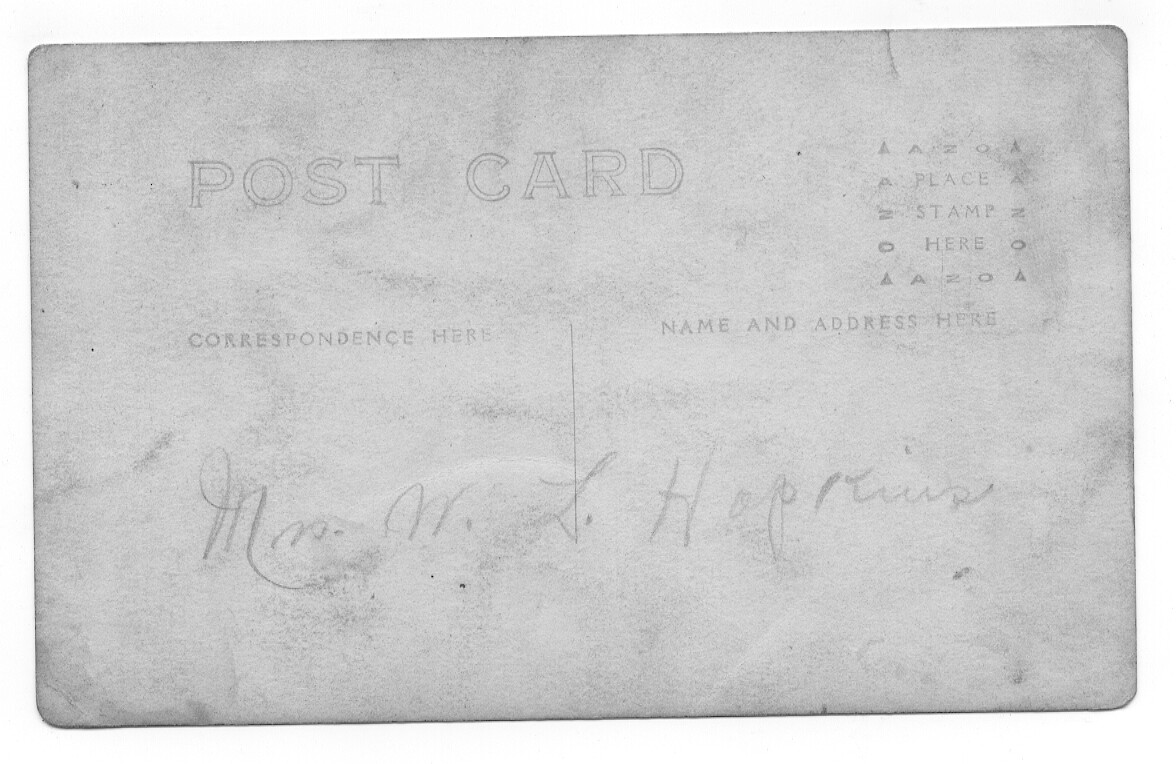 POST CARD
AZO
A PLACE A
N STAMP N
O HERE O
AZO
CORRESPONDENCE HERE
NAME AND ADDRESS HERE
Mrs. W. L. Hopkins